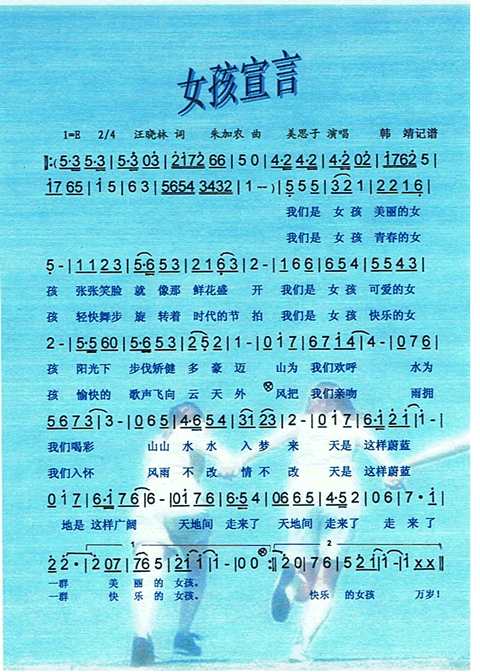 女孩宣言
1=E 2/4 汪晓林 词 朱加农 曲 美思子 演唱 韩 靖记谱
‖:(5·3 5·3 | 5·3 0 3 | 2 1 7 2 6 6 | 5 0 | 4·2 4·2 | 4·2 0 2 | 1 7 6 2 5 |
1 7 6 5 | 1 5 | 6 3 | 5654 3432 | 1 -- ) | 5 5 5 | 3 2 1 | 2 2 1 6 |
我们是 女 孩 美丽的女
我们是 女 孩 青春的女
5 - | 1 1 2 3 | 5·6 5 3 | 2 1 6 3 | 2 - | 1 6 6 | 6 5 4 | 5 5 4 3 |
孩 张张笑脸 就 像那 鲜花盛 开 我们是 女 孩 可爱的女
孩 轻快舞步 旋 转着 时代的节 拍 我们是 女 孩 快乐的女
2 - | 5·5 6 0 | 5·6 5 3 | 2 5 2 | 1 - | 0 1 7 | 6 7 1 4 | - 4 | 0 7 6 |
孩 阳光下 步伐矫健 多 豪 迈 山为 我们欢呼 水为
孩 愉快的 歌声飞向 云 天 外 风把 我们亲吻 雨拥
5 6 7 3 | 3 - | 0 6 5 | 4·6 5 4 | 3 1 2 3 | 2 - | 0 1 7 | 6·1 2 1 | 1 - |
我们喝彩 山山 水 水 入 梦 来 天是 这样蔚蓝
我们入怀 风雨 不 改 情 不 改 天是 这样蔚蓝
0 1 7 | 6·1 7 6 | 6 - | 0 1 7 6 | 6·5 4 | 0 6 6 5 | 4·5 2 | 0 6 | 7 · 1 |
地是 这样广阔 天地间 走来了 天地间 走来了 走 来 了
1 2
2 2 · | 2 0 7 | 7 6 5 | 2 1 1 | 1 - | 0 0 :‖ 2 0 | 7 6 | 5 2 1 | 1 - | 1 x x ‖
一群 美 丽 的 女孩。
一群 快 乐 的 女孩。 快乐 的女孩 万岁!